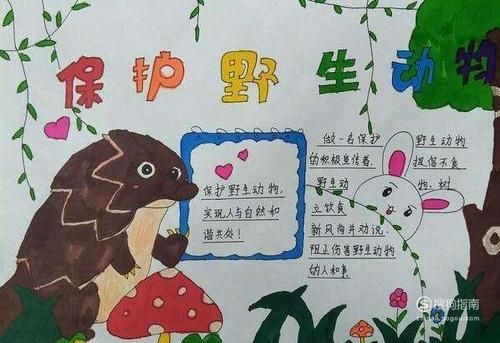 保护野生动物
保护野生动物,
实现人与自然和
谐共处!
做一名保护 野生动物
的积极宣传者, 提倡不食
野生动 物,树
立饮食
新风尚并劝说、
阻止伤害野生动物
的人和事.
搜狗指南
zhinan.sogou.com